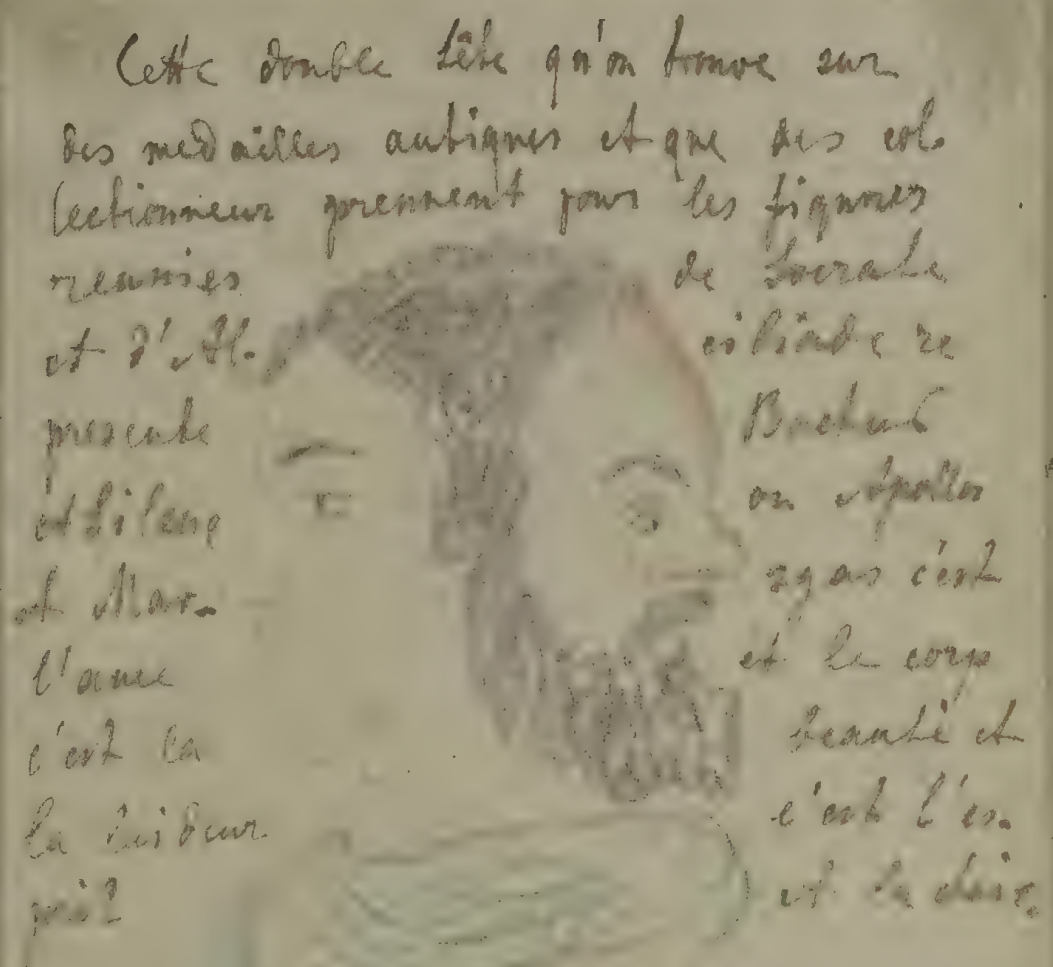 Cette double tête qu'on trouve sur
des medailles antiques et que des col-
lectionneur prennent pour les figures
reunies de Socrate
et d'Al- cibiade re
presente Bachus
et Silene ou Apollon
et Mar- syas c'est
l'ame et le corp
c'est la beauté et
la laideur c'est l'es-
prit et la chair.